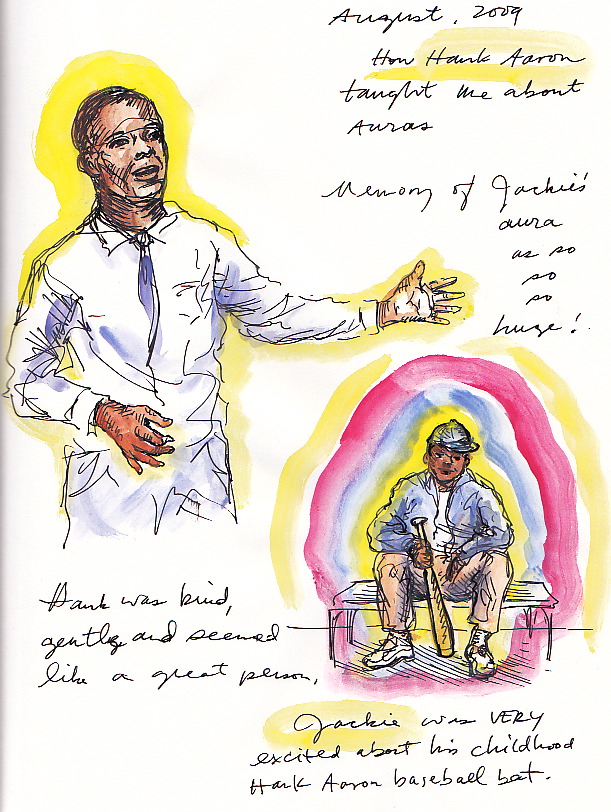 August, 2009
How Hank Aaron
taught me about
Auras
Memory of Jackie's
aura
as so
so
so
huge!
Hank was kind,
gently and seemed
like a great person,
Jackie was VERY
excited about his childhood
Hank Aaron baseball bat.